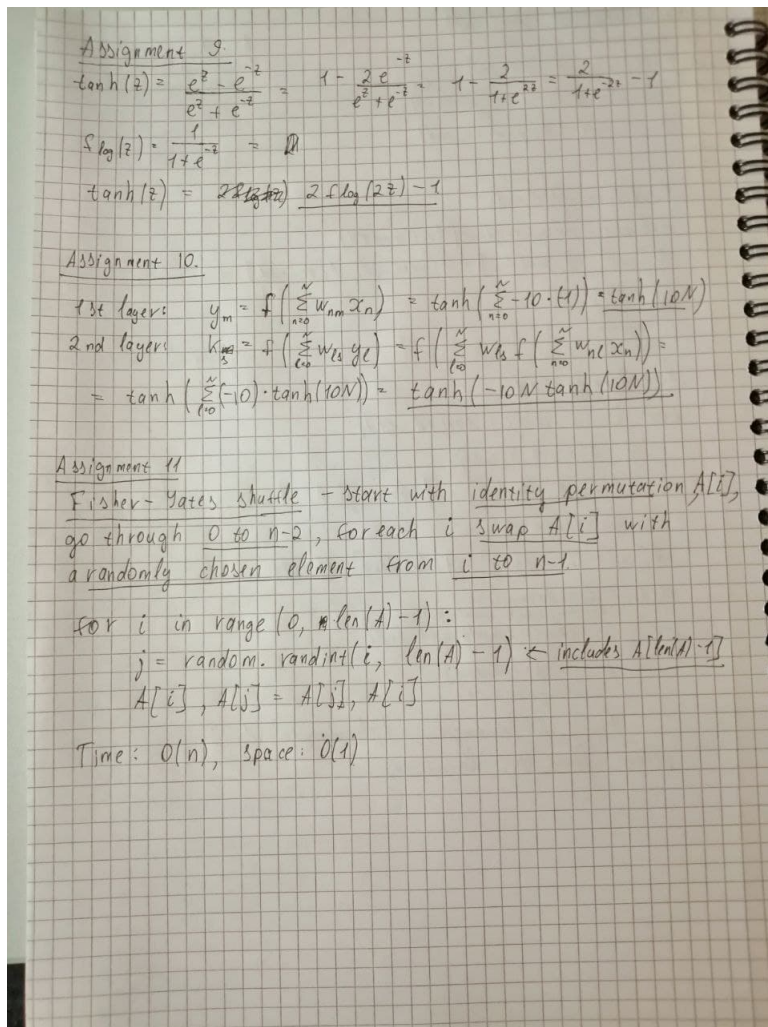 Assignment 9.
tanh(z) = (e^z - e^-z)/(e^z + e^-z) = 1 - 2e^-z/(e^z + e^-z) = 1 - 2/(1+e^2z) = 2/(1+e^-2z) - 1
f log(z) = 1/(1+e^-z) =
tanh(z) = 2 f log(2z) - 1
Assignment 10.
1st layer: y_m = f(∑_{n=0}^N w_nm x_n) = tanh(∑_{n=0}^N -10·(-1)) = tanh(10N)
2nd layer: k_s = f(∑_{l=0}^N w_ls y_l) = f(∑_{l=0}^N w_ls f(∑_{n=0}^N w_nl x_n)) =
= tanh(∑_{l=0}^N (-10)·tanh(10N)) = tanh(-10N tanh(10N)).
Assignment 11
Fisher-Yates shuffle - start with identity permutation A[i],
go through 0 to n-2, for each i swap A[i] with
a randomly chosen element from i to n-1.
for i in range (0, len(A)-1):
j = random. randint(i, len(A)-1) ← includes A[len(A)-1]
A[i], A[j] = A[j], A[i]
Time: O(n), space: O(1)